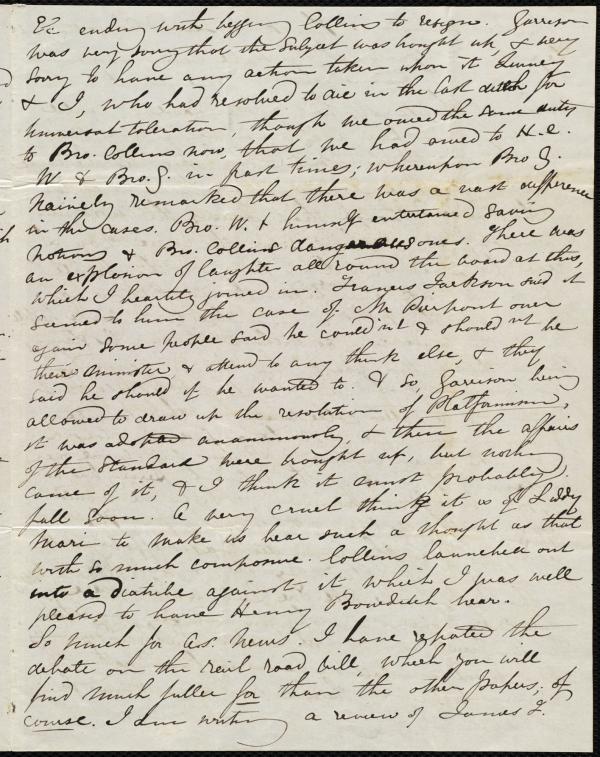 &c ending with begging Collins to resign. Garrison
was very sorry that the subject was brought up, & very
sorry to have any action taken upon it. Quincy
& I, who had resolved to die in the last ditch for
universal toleration, though we owed the same duty
to Bro. Collins now, that we had owed to H. C.
W. & Bro. G. in past times; whereupon Bro G.
naively remarked that there was a vast difference
in the cases. Bro. W. & himself entertained saving
notions & Bro. Collins dangerous ones. There was
an explosion of laughter all round the board at this,
which I heartily joined in. Francis Jackson said it
seemed to him the case of Mr Pierpont over
again some people said he could n't & should n't be
their minister & attend to any think else, & they
said he should if he wanted to. & so, Garrison being
allowed to draw up the resolution of Platformism,
it was adopted unanimously, & then the affairs
of the Standard were brought up, but nothing
came of it, & I think it must probably
fall soon. A very cruel thing it is of Liddy
Mari to make us bear such a thought as that
with so much composure. Collins launched out
into a diatribe against it which I was well
pleased to have Henry Bowditch hear.
So much for a.s. news. I have reported the
debate on the rail road bill, which you will
find much fuller for than the other papers, of
course. I am writing a review of James F.